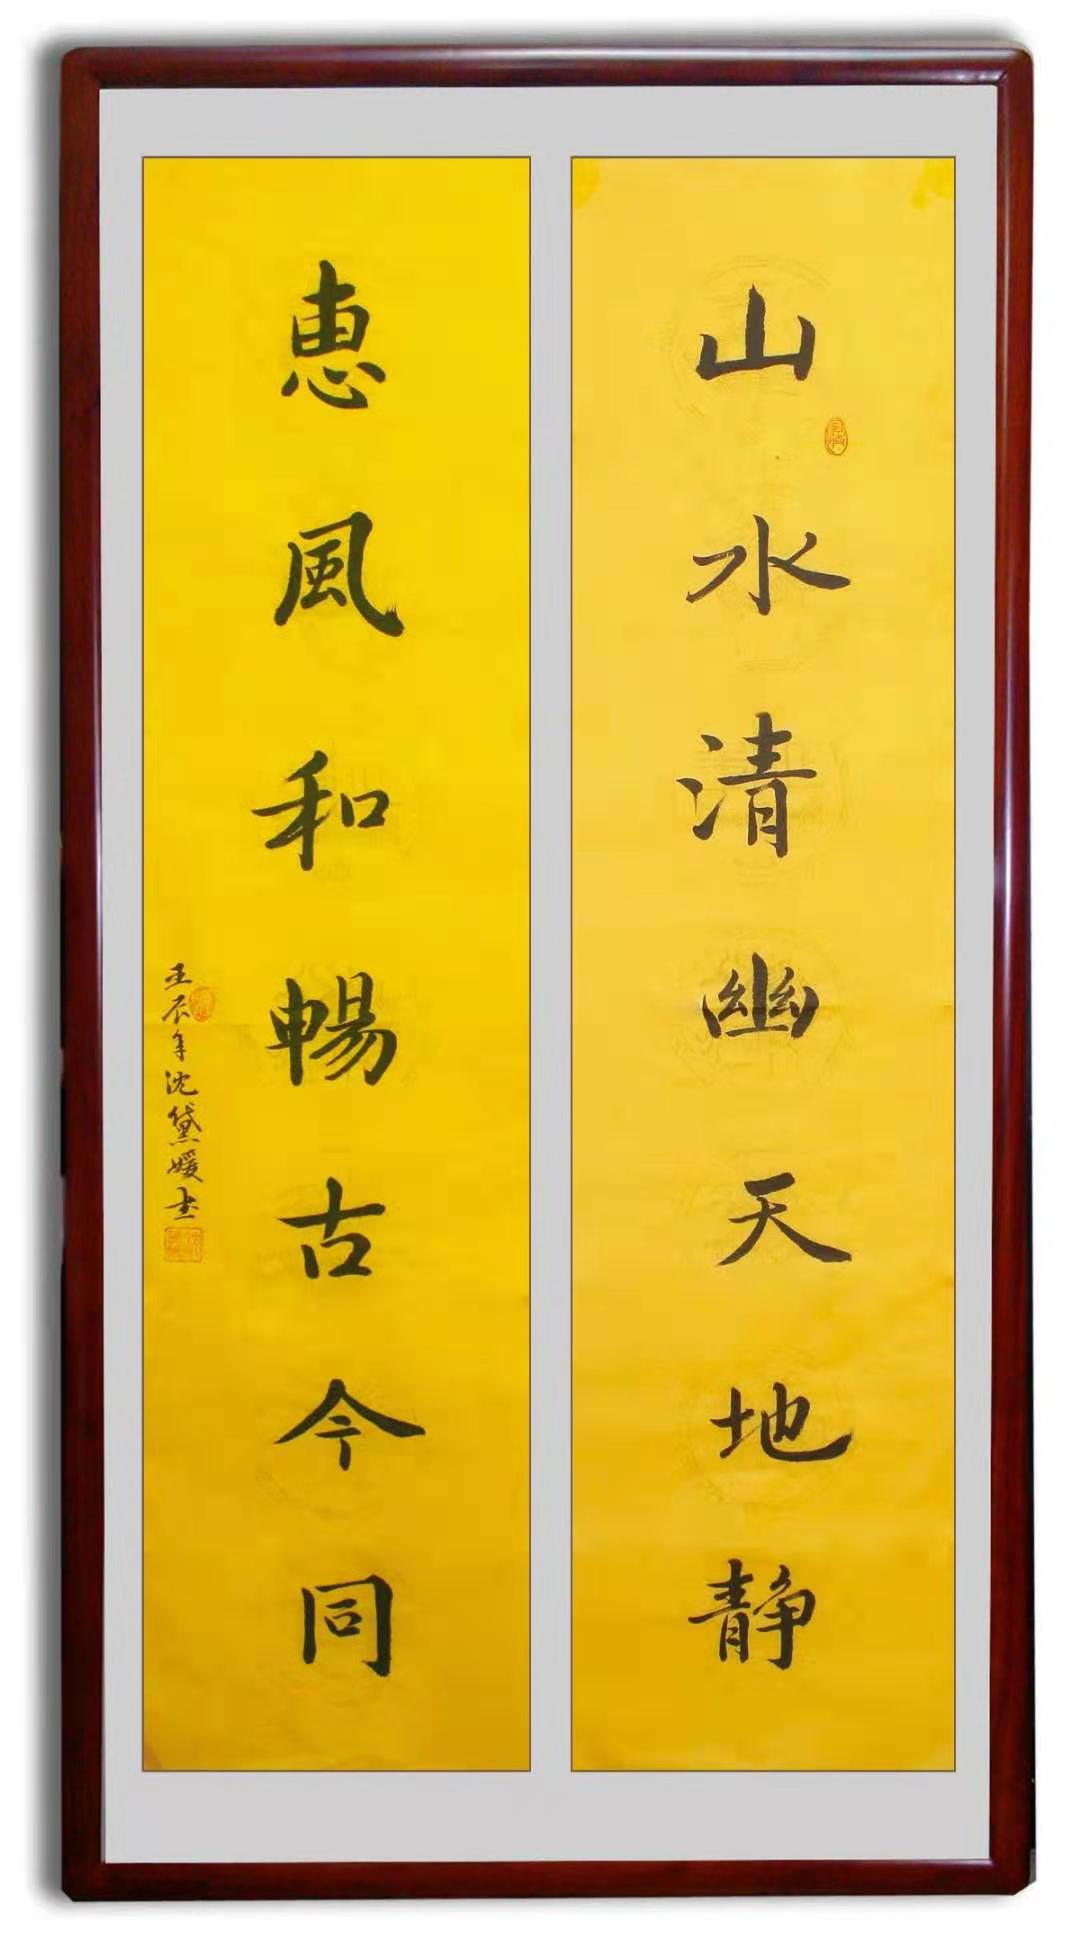 山水清幽天地静
惠風和暢古今同
壬辰年沈黛媛书